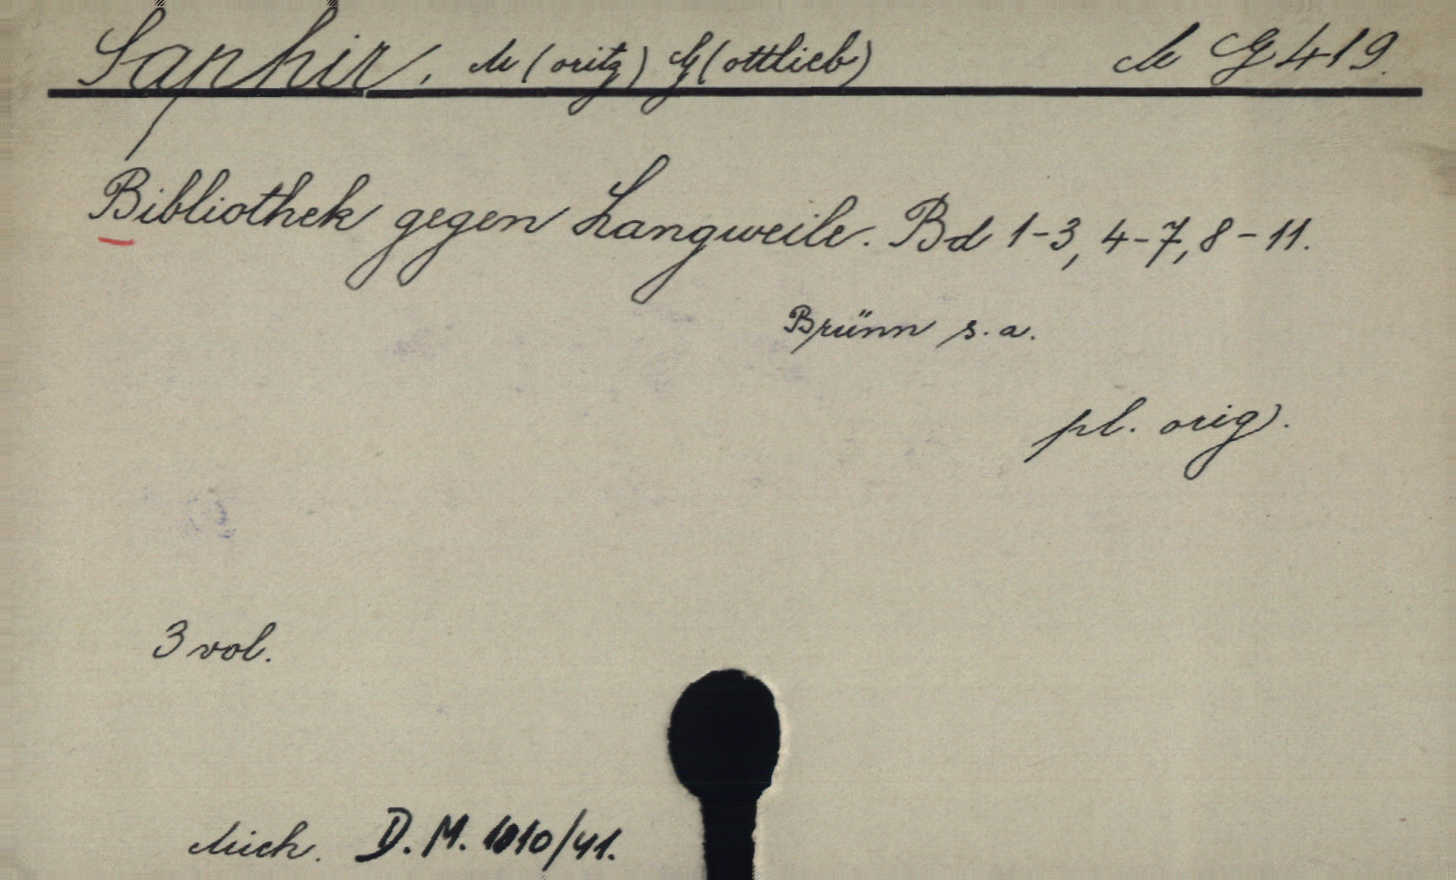 Saphir, M(oritz) G(ottlieb) M G 419.
Bibliothek gegen Langweile. Bd 1-3, 4-7, 8-11.
Brünn s.a.
pl. orig.
3 vol.
Mich. D.M. 1010/41.